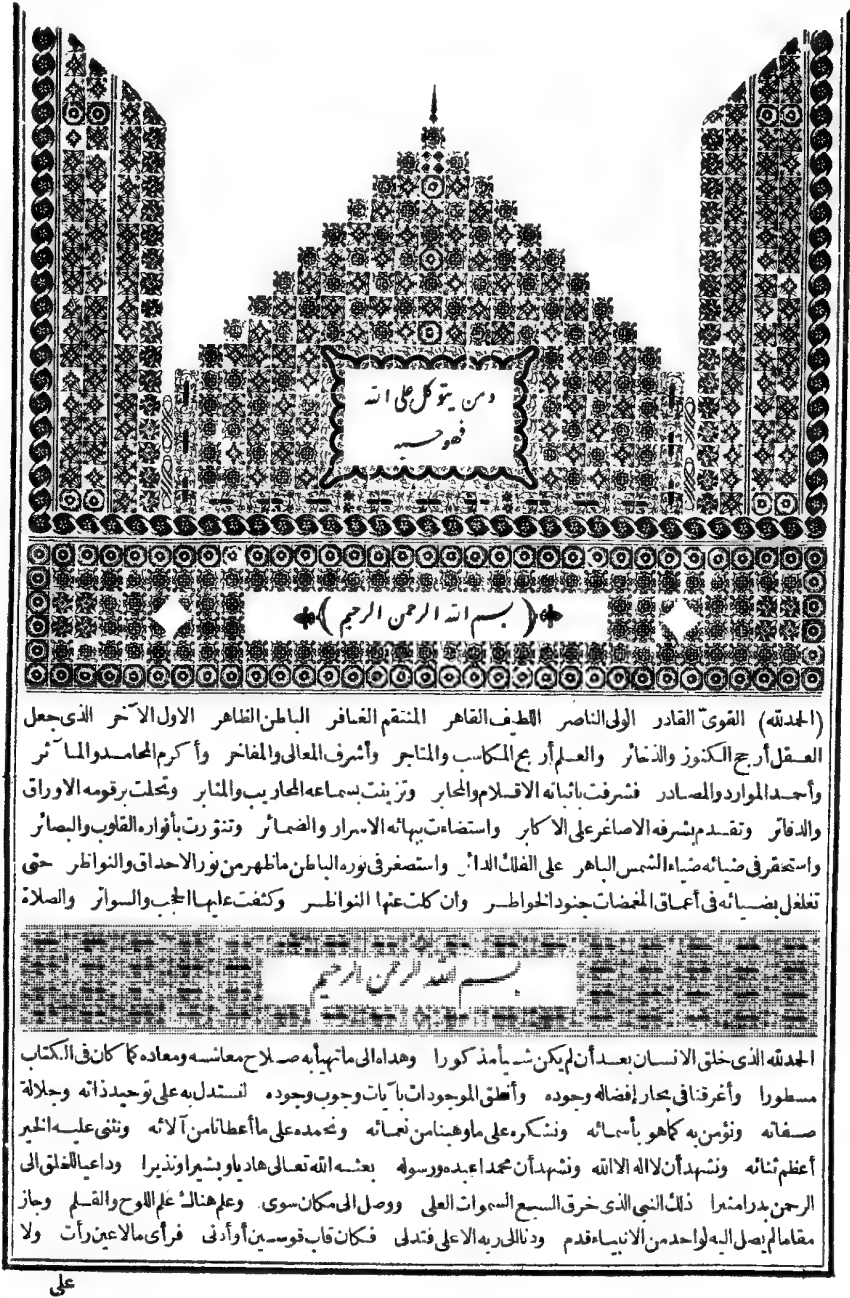 ومن يتوكل على الله
فهو حسبه
﴿ بسم الله الرحمن الرحيم ﴾
(الحمد لله) القوى القادر الولى الناصر اللطيف القاهر المنتقم الغافر الباطن الظاهر الاول الآخر الذى جعل
العقل أرجح الكنوز والذخائر والعلم أربح المكاسب والمتاجر وأشرف المعالى والمفاخر وأكرم المحامد والمآثر
وأحمد الموارد والمصادر فشرفت باثباته الاقلام والمحابر وتزينت بسماعه المحاريب والمنابر وتحلت برقومه الاوراق
والدفاتر وتقدم بشرفه الاصاغر على الاكابر واستضاءت ببهائه الاسرار والضمائر وتنورت بأنواره القلوب والبصائر
واستحقر فى ضيائه ضياء الشمس الباهر على الفلك الدائر واستصغر فى نوره الباطن ما ظهر من نور الاحداق والنواظر حتى
تغلغل بضيائه فى أعماق المغمضات جنود الخواطر وان كلت عنها النواظر وكثفت عليها الحجب والسواتر والصلاة
بسم الله الرحمن الرحيم
الحمد لله الذى خلق الانسان بعد أن لم يكن شيأ مذكورا وهداه الى ما تهيأ به صلاح معاشه ومعاده كما كان فى الكتاب
مسطورا وأغرقنا فى بحار إفضاله وجوده وأنطق الموجودات بآيات وجوب وجوده لنستدل به على توحيد ذاته وجلالة
صفاته ونؤمن به كما هو بأسمائه ونشكره على ما وهبنا من نعمائه ونحمده على ما أعطانا من آلائه ونثنى عليه الخير
أعظم ثنائه ونشهد أن لا اله الا الله ونشهد أن محمدا عبده ورسوله بعثه الله تعالى هاديا وبشيرا ونذيرا وداعيا للخلق الى
الرحمن بدرا منيرا ذلك النبى الذى خرق السبع السموات العلى ووصل الى مكان سوى وعلم هنالك علم اللوح والقلم وجاز
مقاما لم يصل اليه لواحد من الانبياء قدم ودنا الى ربه الاعلى فتدلى فكان قاب قوسين أو أدنى فرأى ما لا عين رأت ولا
على